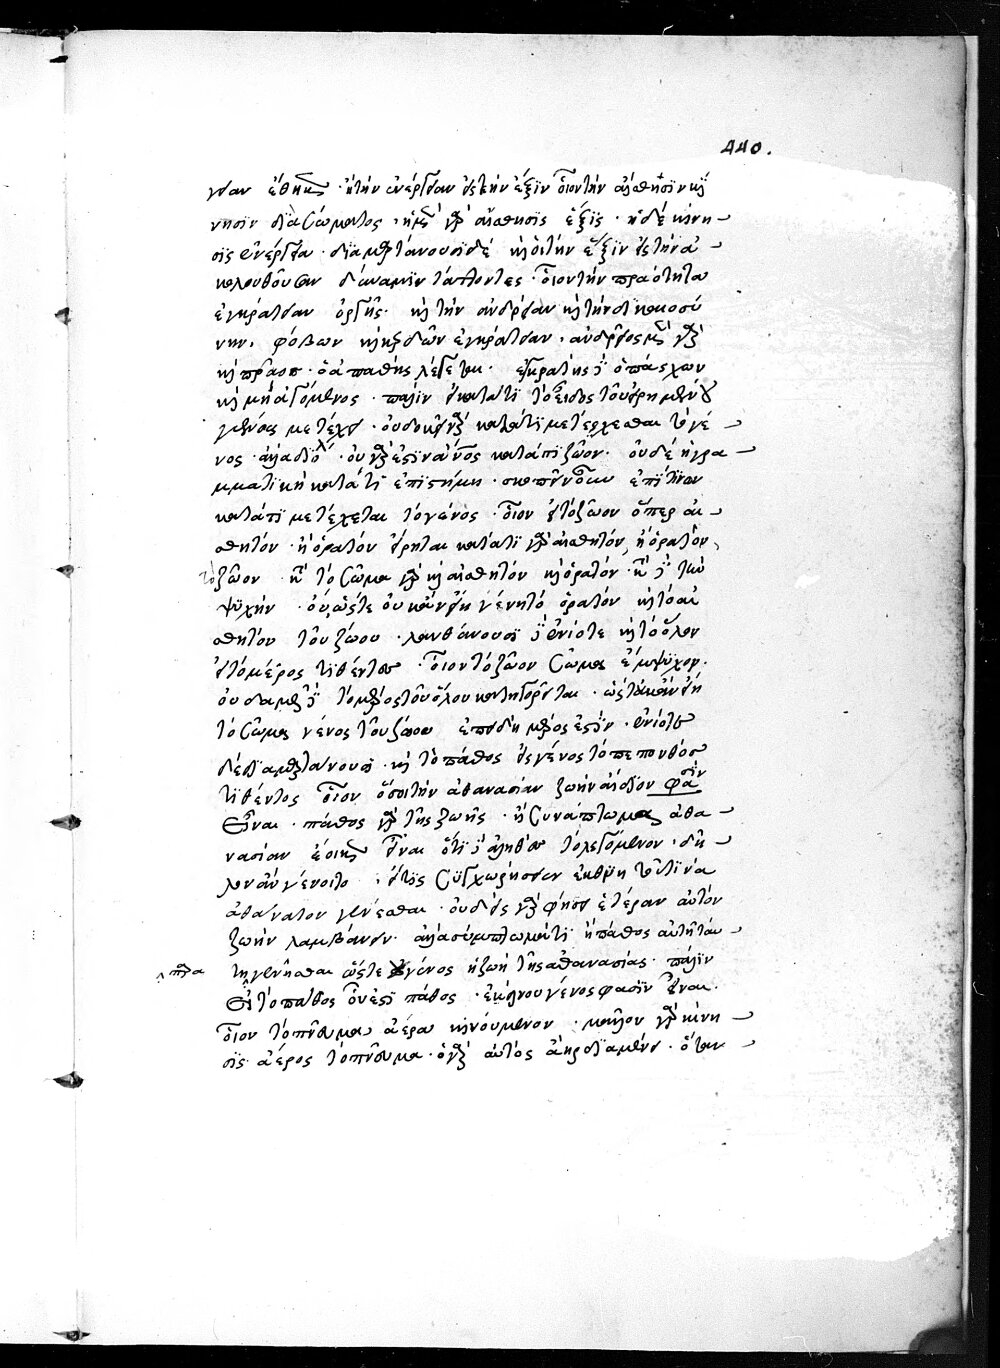 440.
γειαν ἔθηκε · ἢ τὴν ἐνέργειαν εἰς τὴν ἕξιν οἷον τὴν αἴσθησιν κί
νησιν διὰ σώματος · ἡ μὲν γὰρ αἴσθησις ἕξις · ἡ δὲ κίνη
σις ἐνέργεια · διαμαρτάνουσι δὲ καὶ ὅσοι τὴν ἕξιν εἰς τὴν ἀ
κολουθοῦσαν δύναμιν τάττοντες · οἷον τὴν πραότητα
ἐγκράτειαν ὀργῆς · καὶ τὴν ἀνδρείαν καὶ τὴν δικαιοσύ
νην, φόβων καὶ κερδῶν ἐγκράτειαν · ἀνδρεῖος μὲν γὰρ
καὶ πρᾶος · ὁ ἀπαθὴς λέγεται · ἐγκρατὴς δὲ ὁ πάσχων
καὶ μὴ ἀγόμενος · πάλιν εἰ κατά τι τὸ εἶδος τοῦ εἰρημένου
γένους μετέχει · οὐ δοκεῖ γὰρ κατά τι μετέχεσθαι τὸ γέ
νος · ἀλλ' ἁπλῶς · οὐ γάρ ἐστιν ἄνθρωπος κατά τι ζῷον · οὐδὲ ἡ γρα
μματικὴ κατά τι ἐπιστήμη · σκοπεῖν οὖν εἰ ἐπί τινων
κατά τι μετέχεται τὸ γένος · οἷον εἰ τὸ ζῷον ὅπερ αἰ
σθητόν · ἢ ὁρατὸν εἴρηται κατά τι γὰρ αἰσθητόν, ἢ ὁρατὸν
τὸ ζῷον · κατὰ τὸ σῶμα γὰρ καὶ αἰσθητὸν καὶ ὁρατόν · κατὰ δὲ τὴν
ψυχὴν · οὔ, ὥστε οὐκ ἂν εἴη γένη τὸ ὁρατὸν καὶ τὸ αἰ
σθητὸν τοῦ ζῴου · λανθάνουσι δὲ ἐνίοτε καὶ τὸ ὅλον
εἰς τὸ μέρος τιθέντες · οἷον τὸ ζῷον σῶμα ἔμψυχον ·
οὐδαμῶς δὲ τὸ μέρος τοῦ ὅλου κατηγορεῖται · ὥστε οὐκ ἂν εἴη
τὸ σῶμα γένος τοῦ ζῴου ἐπειδὴ μέρος ἐστίν · ἐνίοτε
δὲ διαμαρτάνουσι · καὶ τὸ πάθος εἰς γένος τὸ πεπονθὸς
τιθέντες οἷον ὅσοι τὴν ἀθανασίαν ζωὴν ἀίδιον φασὶν
εἶναι · πάθος γὰρ τῆς ζωῆς · ἢ σύμπτωμα ἡ ἀθα
νασία ἔοικεν εἶναι ὅτι δὲ ἀληθὲς τὸ λεγόμενον · δῆ
λον ἂν γένοιτο · εἴ τις συγχωρήσειεν ἐκ θνητοῦ τινὰ
ἀθάνατον γενέσθαι · οὐδεὶς γὰρ φήσει ἑτέραν αὐτὸν
ζωὴν λαμβάνειν · ἀλλὰ σύμπτωμά τι ἢ πάθος αὐτῇ ταύ
τῃ γενέσθαι ὥστε οὐ γένος ἡ ζωὴ τῆς ἀθανασίας · πάλιν
εἰ τὸ πάθος οὗ ἐστι πάθος · ἐκεῖνο γένος φασὶν εἶναι ·
οἷον τὸ πνεῦμα ἀέρα κινούμενον · μᾶλλον γὰρ κίνη
σις ἀέρος τὸ πνεῦμα · ὁ γὰρ αὐτὸς ἀὴρ διαμένει · ὅταν